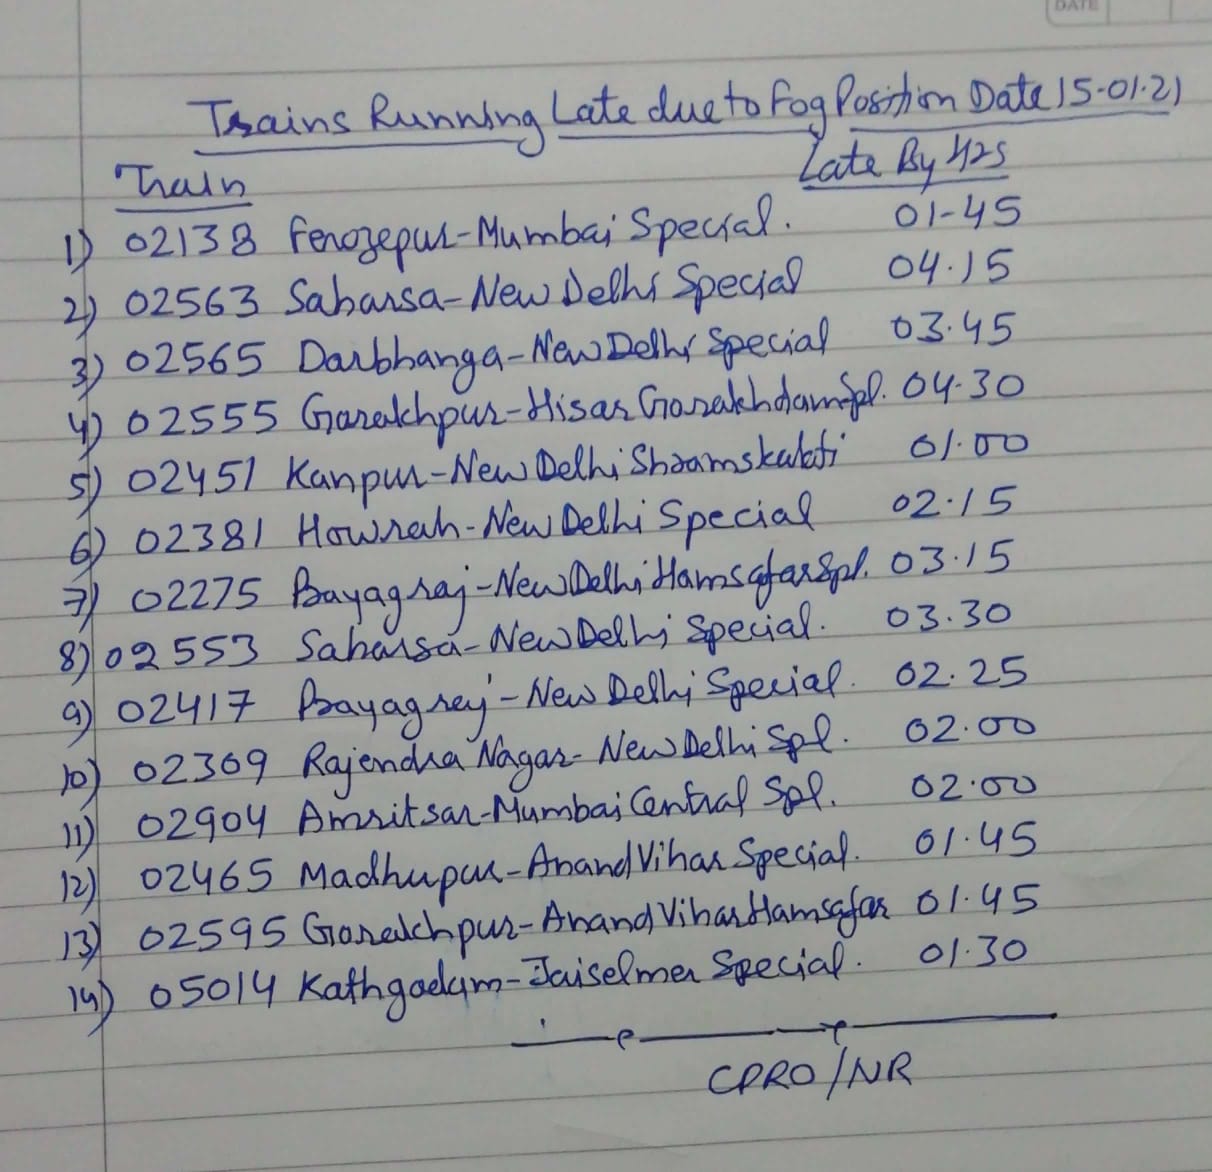 DATE
Trains Running Late due to Fog Position Date 15-01-21
Train Late By H2S
1) 02138 Ferozepur-Mumbai Special. 01-45
2) 02563 Saharsa-New Delhi Special 04.15
3) 02565 Darbhanga-New Delhi Special 03.45
4) 02555 Gorakhpur-Hisar Gorakhdam Spl. 04.30
5) 02451 Kanpur-New Delhi Shramshakti 01.00
6) 02381 Howrah-New Delhi Special 02.15
7) 02275 Prayagraj-New Delhi Hamsafar Spl. 03.15
8) 02553 Saharsa-New Delhi Special. 03.30
9) 02417 Prayagraj-New Delhi Special. 02.25
10) 02309 Rajendra Nagar-New Delhi Spl. 02.00
11) 02904 Amritsar-Mumbai Central Spl. 02.00
12) 02465 Madhupur-Anand Vihar Special. 01.45
13) 02595 Gorakhpur-Anand Vihar Hamsafar 01.45
14) 05014 Kathgodam-Jaiselmer Special. 01.30
CPRO/NR